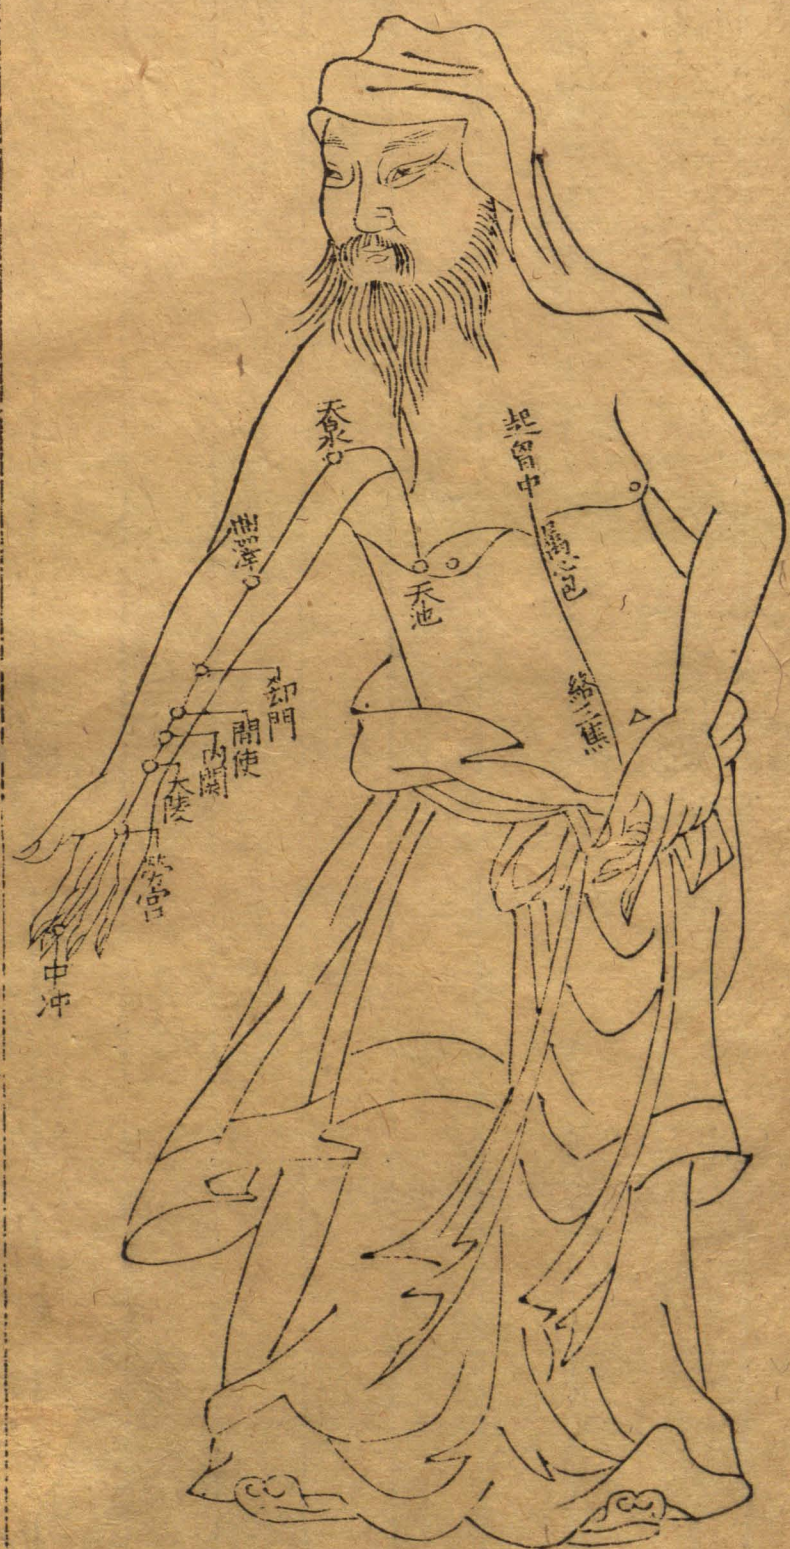 起胷中
屬心包
絡三焦
天池
天泉
曲澤
郄門
間使
內關
大陵
勞宮
中冲